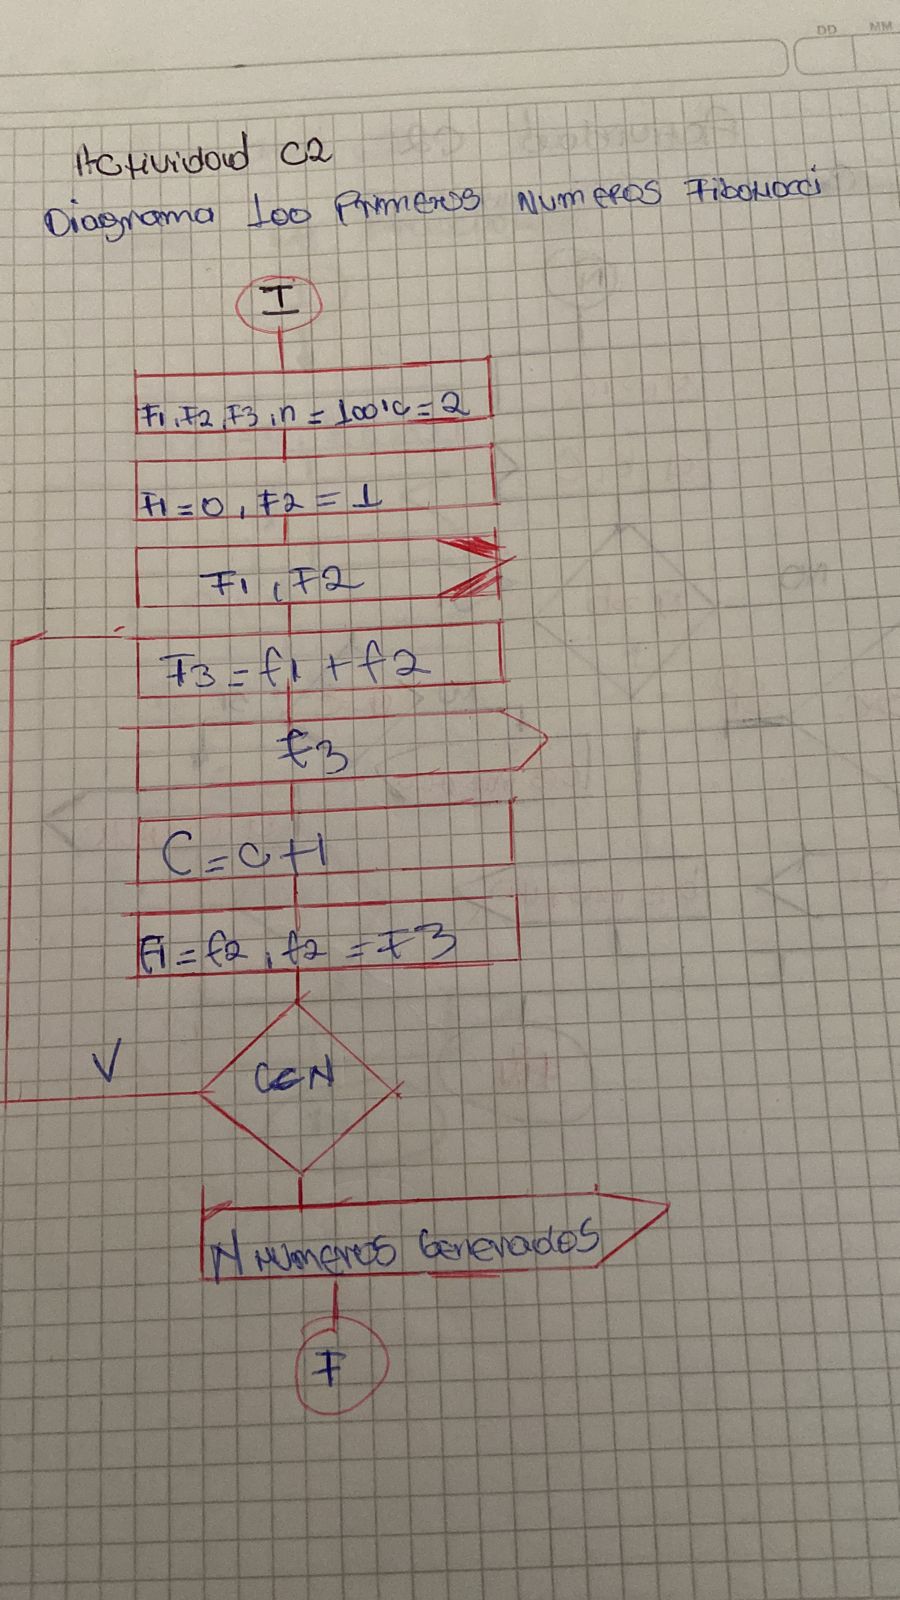 DD MM
Actividad C2
Diagrama 100 Primeros Numeros Fibonacci
I
F1, F2, F3, n = 100, c = 2
F1 = 0, F2 = 1
F1, F2
F3 = f1 + f2
f3
C = c + 1
F1 = f2, f2 = F3
V
C<N
N numeros Generados
F